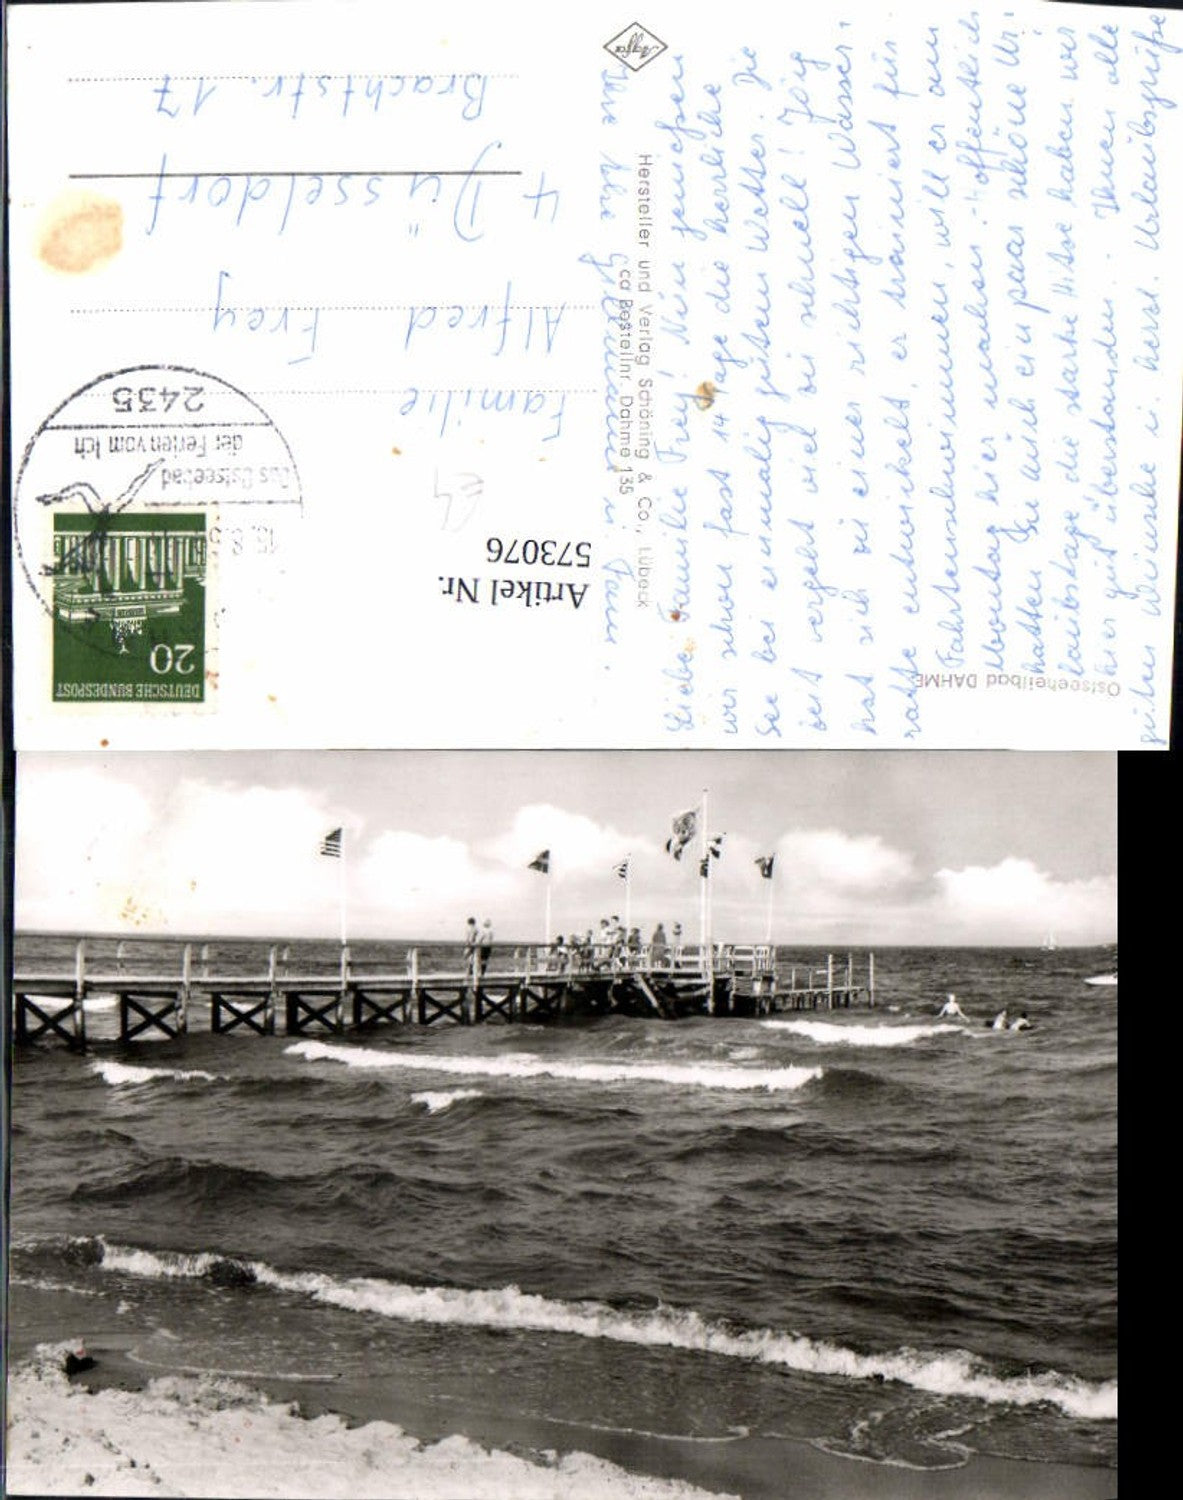 Liebe Familie Frey! Nun genießen
wir schon fast 14 Tage die herrliche
See bei einmalig gutem Wetter. Die
Zeit vergeht viel zu schnell! Jörg
hat sich zu einer richtigen Wasser-
ratte entwickelt, er trainiert für
Fahrtenschwimmen, will er am
Montag hier machen. - Hoffentlich
hatten Sie auch ein paar schöne Ur-
laubstage, die starke Hitze haben wir
hier gut überstanden. Ihnen alle
guten Wünsche u. herzl. Urlaubsgrüße
Ihre u. Fam.
Ostseeheilbad DAHME
Hersteller und Verlag Schöning & Co., Lübeck
Bestellnr. Dahme 135
Agfa
Artikel Nr.
573076
DEUTSCHE BUNDESPOST
20
Das Ostseebad
der Ferien vom Ich
2435
Familie
Alfred Frey
4 Düsseldorf
Brachtstr. 17